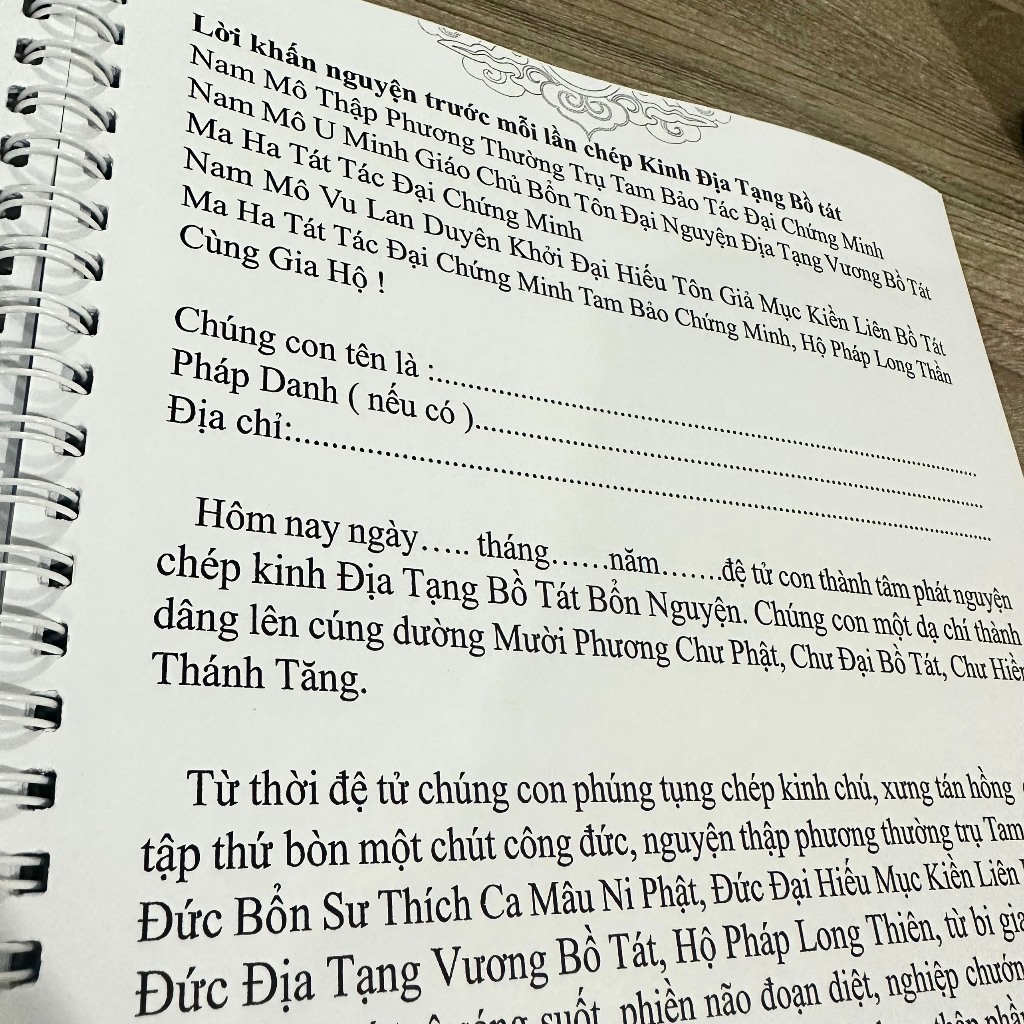 Lời khấn nguyện trước mỗi lần chép Kinh Địa Tạng Bồ tát
Nam Mô Thập Phương Thường Trụ Tam Bảo Tác Đại Chứng Minh
Nam Mô U Minh Giáo Chủ Bổn Tôn Đại Nguyện Địa Tạng Vương Bồ Tát
Ma Ha Tát Tác Đại Chứng Minh
Nam Mô Vu Lan Duyên Khởi Đại Hiếu Tôn Giả Mục Kiền Liên Bồ Tát
Ma Ha Tát Tác Đại Chứng Minh Tam Bảo Chứng Minh, Hộ Pháp Long Thần
Cùng Gia Hộ !
Chúng con tên là :..........................................................................
Pháp Danh ( nếu có )......................................................................
Địa chỉ:..........................................................................................
Hôm nay ngày..... tháng......năm.......đệ tử con thành tâm phát nguyện
chép kinh Địa Tạng Bồ Tát Bổn Nguyện. Chúng con một dạ chí thành
dâng lên cúng dường Mười Phương Chư Phật, Chư Đại Bồ Tát, Chư
Thánh Tăng.
Từ thời đệ tử chúng con phúng tụng chép kinh chú, xưng tán hồng
tập thứ bòn một chút công đức, nguyện thập phương thường trụ Tam
Đức Bổn Sư Thích Ca Mâu Ni Phật, Đức Đại Hiếu Mục Kiền Liên
Đức Địa Tạng Vương Bồ Tát, Hộ Pháp Long Thiên, từ bi
suốt, phiền não đoạn diệt, nghiệp chướng